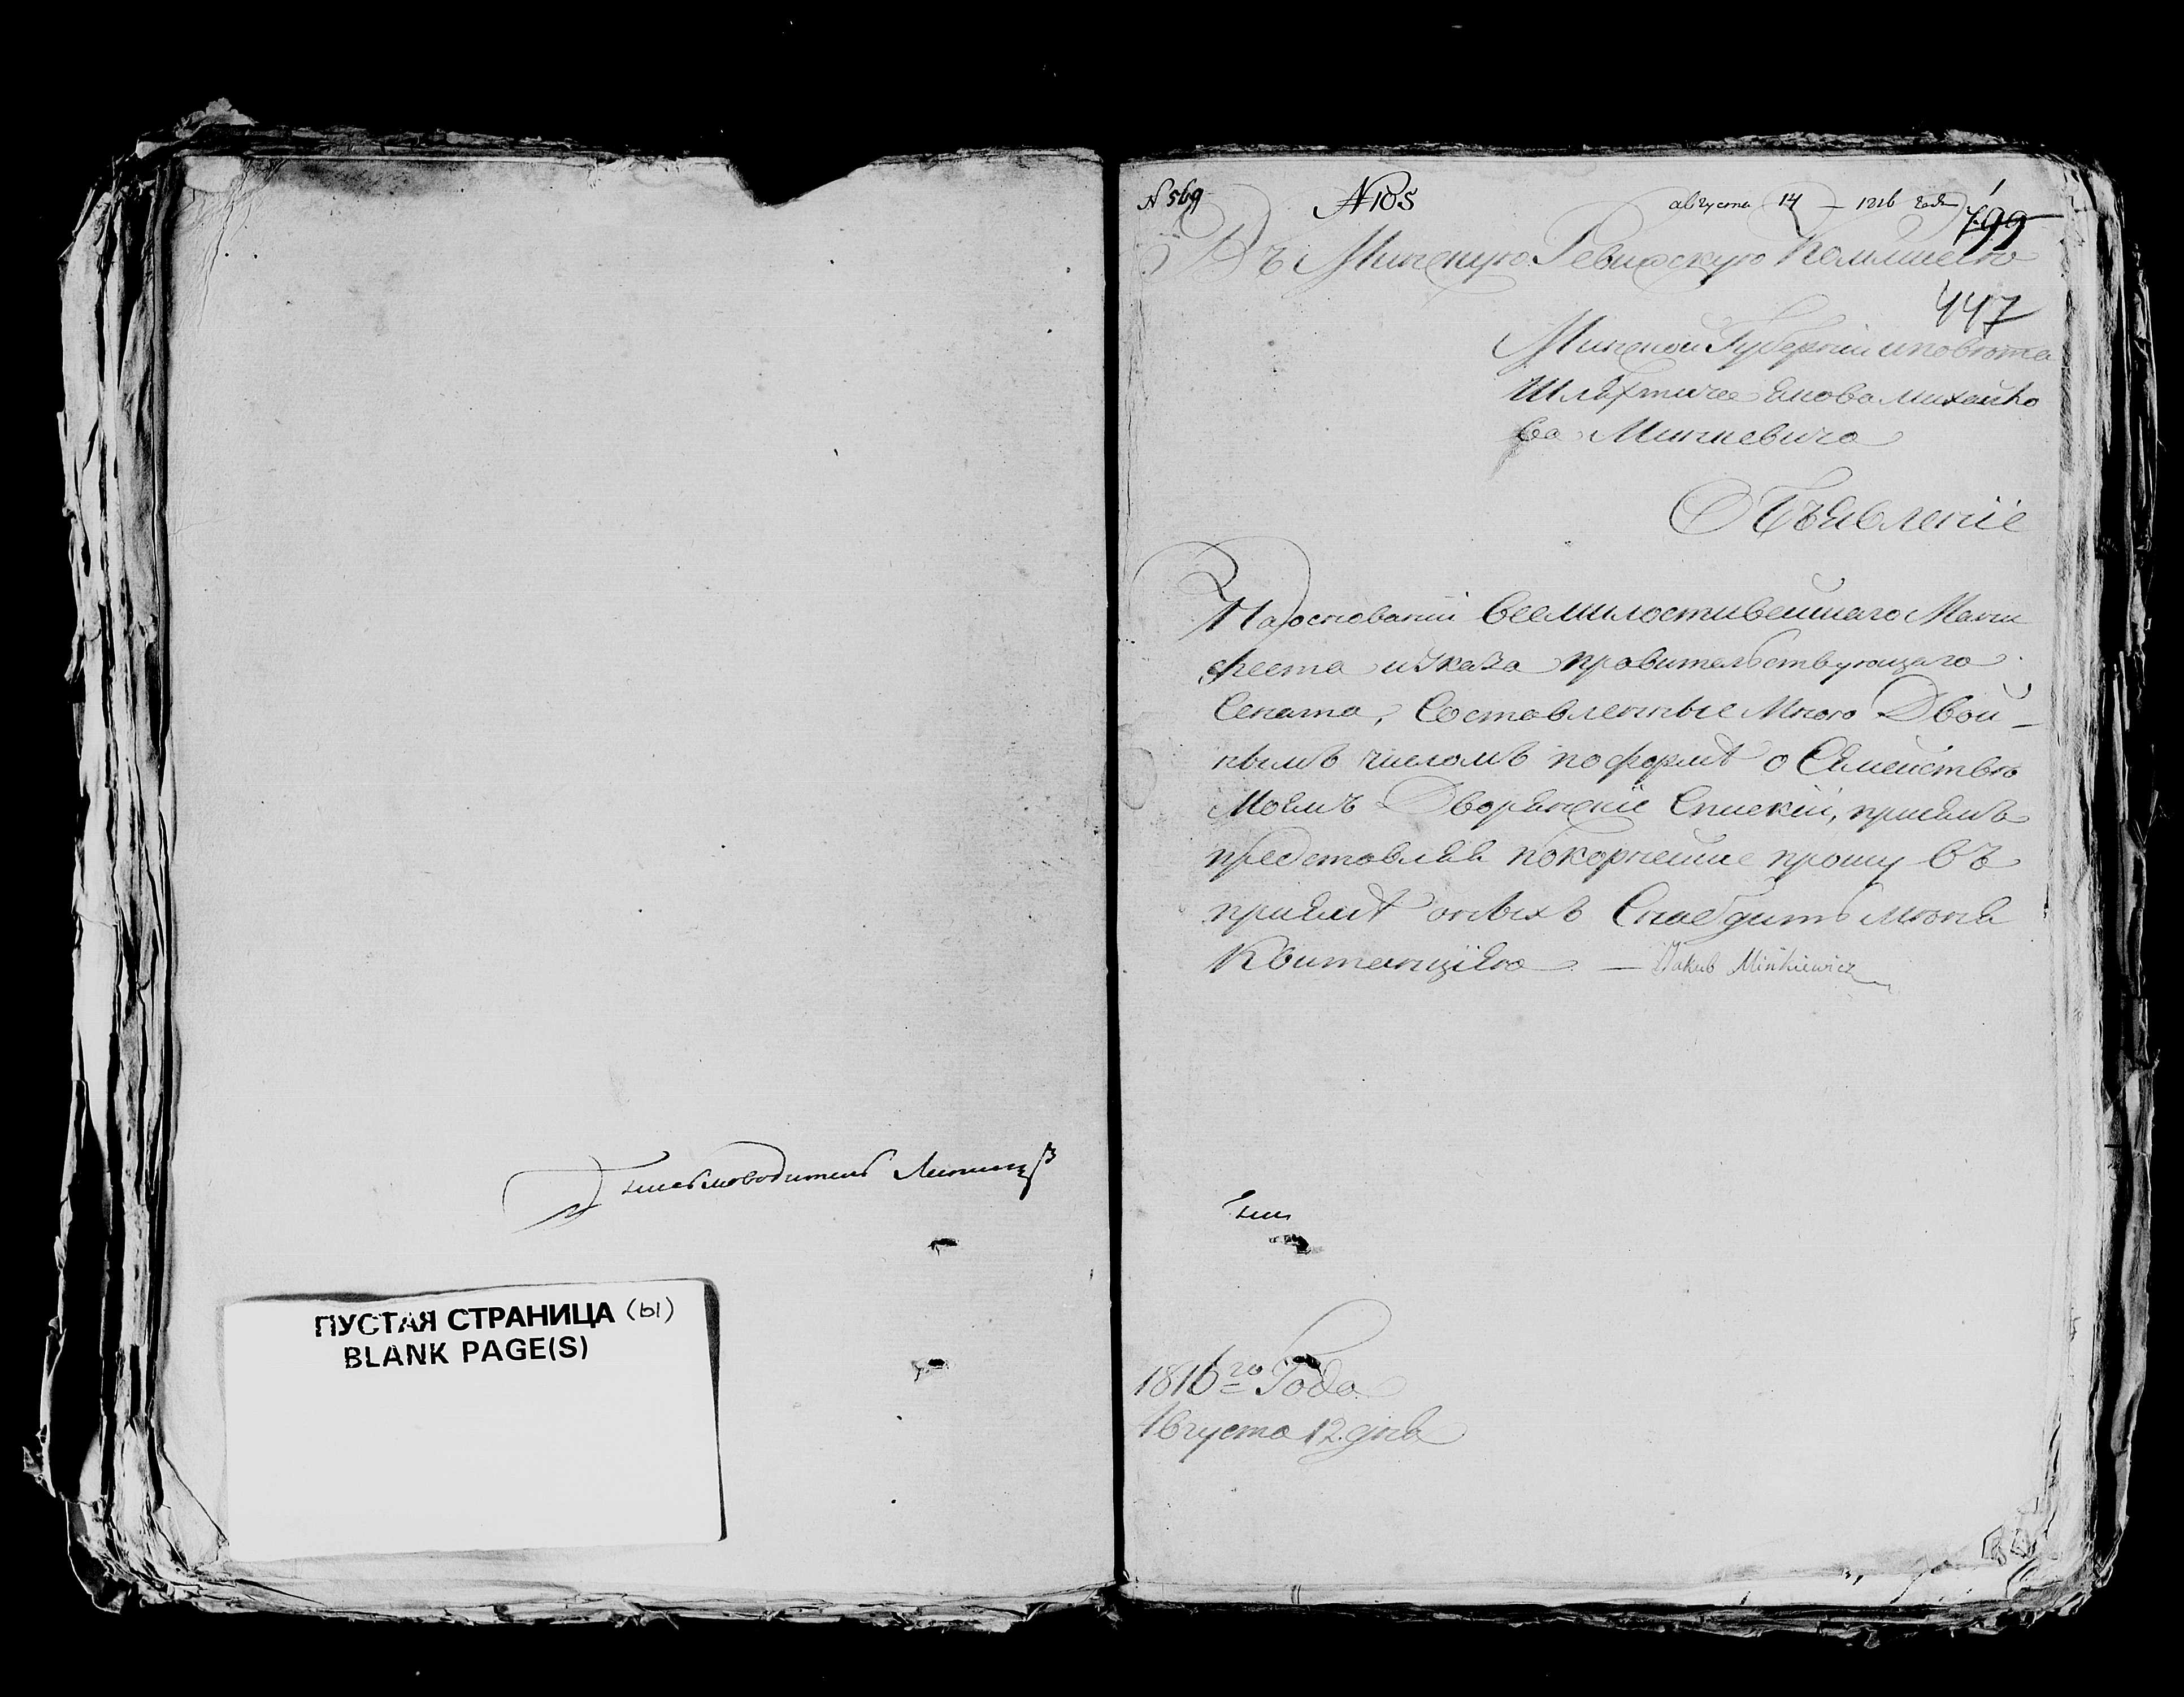 Письмоводитель
ПУСТАЯ СТРАНИЦА (ы)
BLANK PAGE(S)
N 569
N 185
августа 14 – 1816 года
799
Въ Минскую Ревизскую Коммисию
447
Минской Губернiи и повѣта
Шляхтича Якова Михайло
ва Минкевича
Объявленiе
На основанiи Всемилостивейшаго Мани
феста и Указа правительствующаго
Сената, Составленные Мною Двой-
нымъ числомъ по формѣ о Семействѣ
Моемъ Дворянскiе Списки, при семъ
представляя покорнейше прошу въ
прiемѣ оныхъ Снабдить меня
Квитанцiею — Jakub Minkiewicz
1816го Года
Августа 12 дня